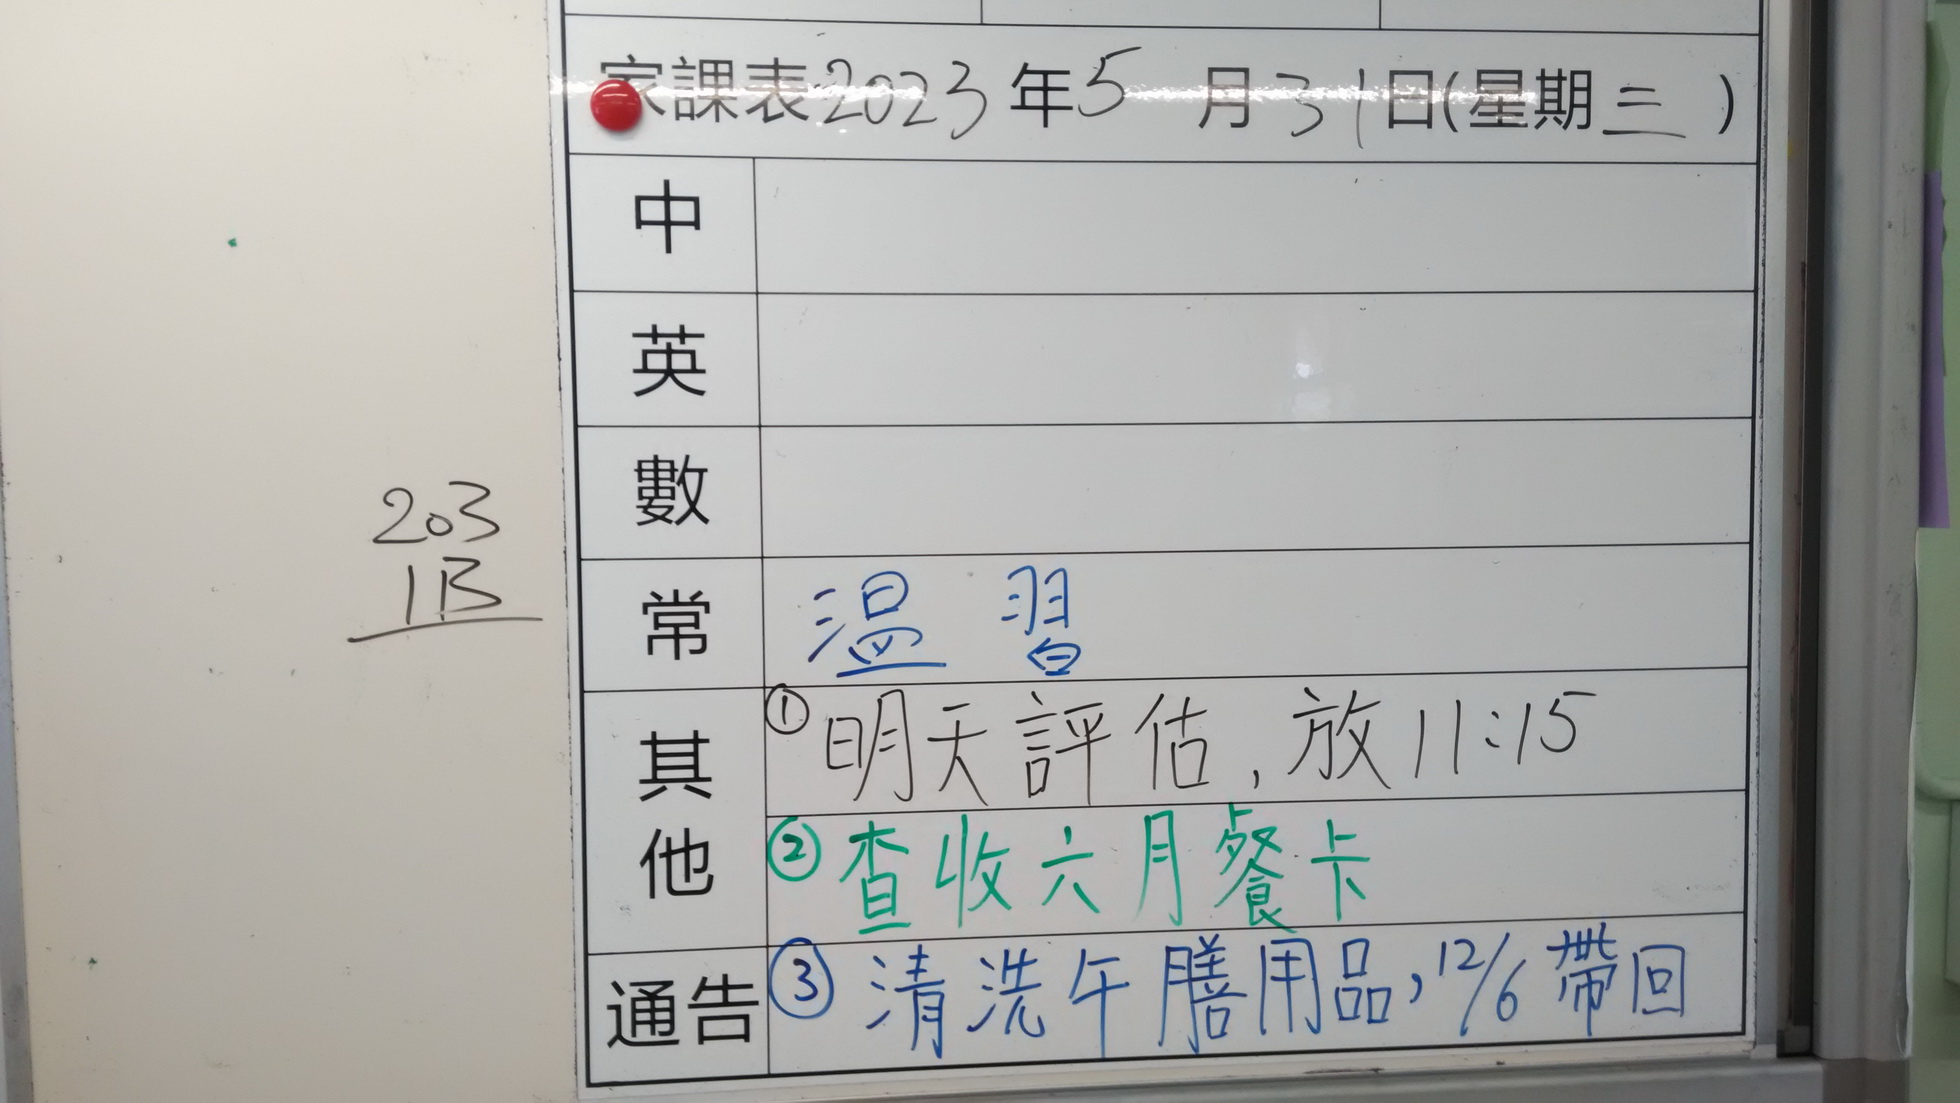 家課表2023年5月31日(星期三)
中
英
數
203
1B
常 温習
其他 ①明天評估,放11:15
②查收六月餐卡
通告 ③清洗午膳用品,12/6帶回